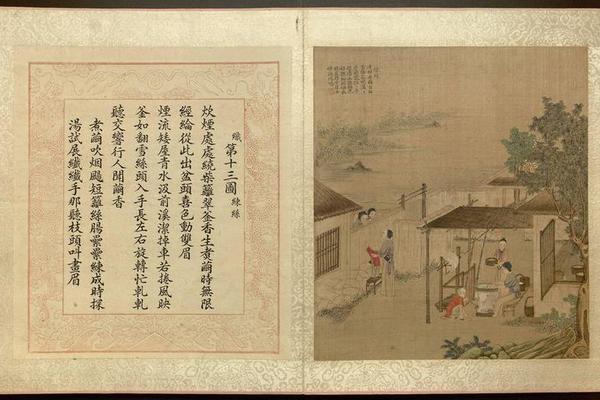 織第十三圖練絲
炊煙處處繞柴籬翠釜香生煮繭時無限
經綸從此出盆頭喜色動雙眉
煙流矮屋青水汲前溪潔掉車若捲風映
釜如翻雪絲頭入手長左右旋轉忙軋軋
聽交響行人聞繭香
煮繭吹烟颺短籬絲腸縈縈練成時探
湯試展纖纖手那聽枝頭叫畫眉